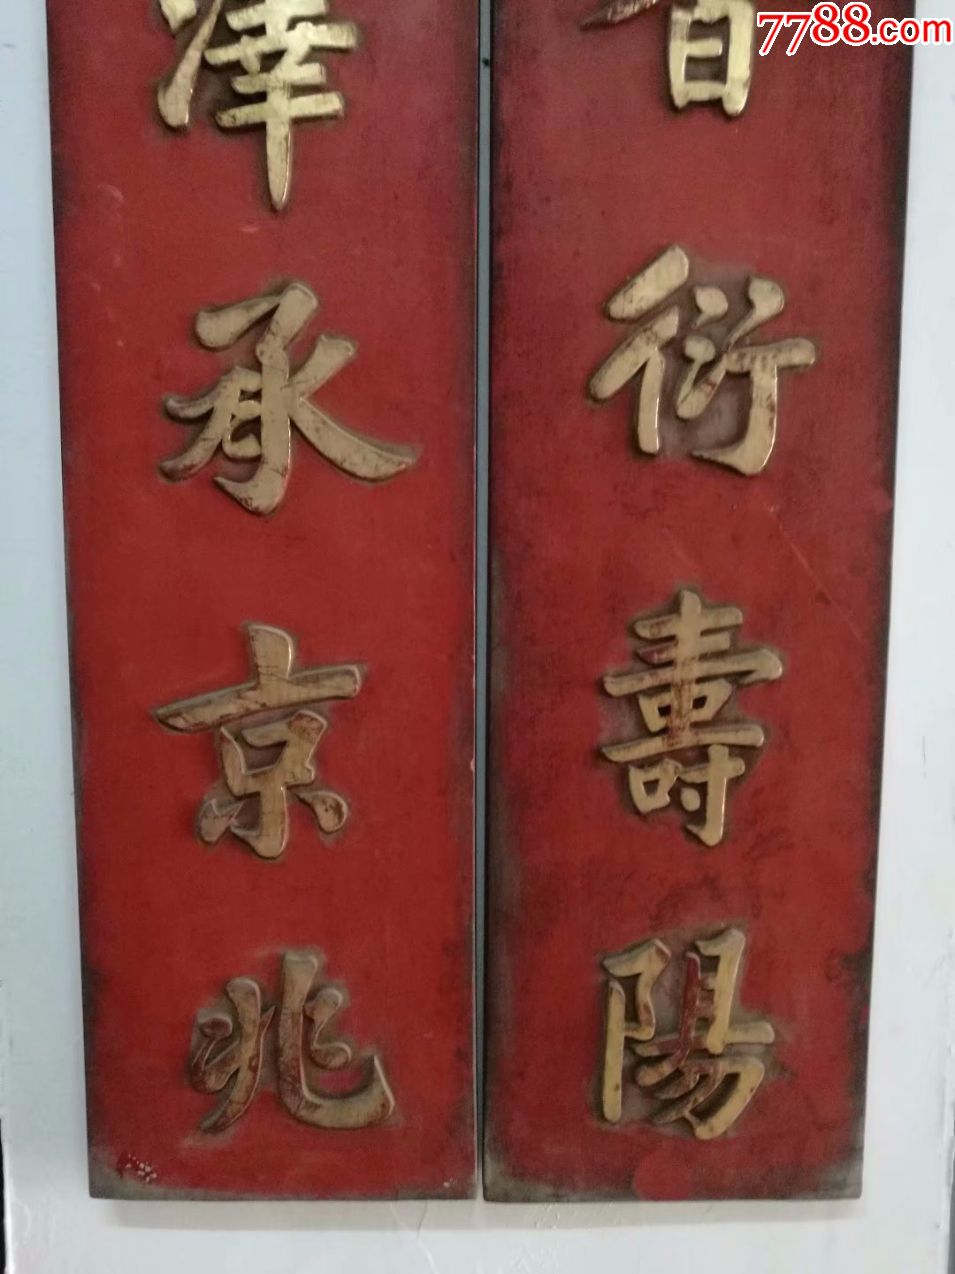 7788.com
衍壽陽
澤承京兆